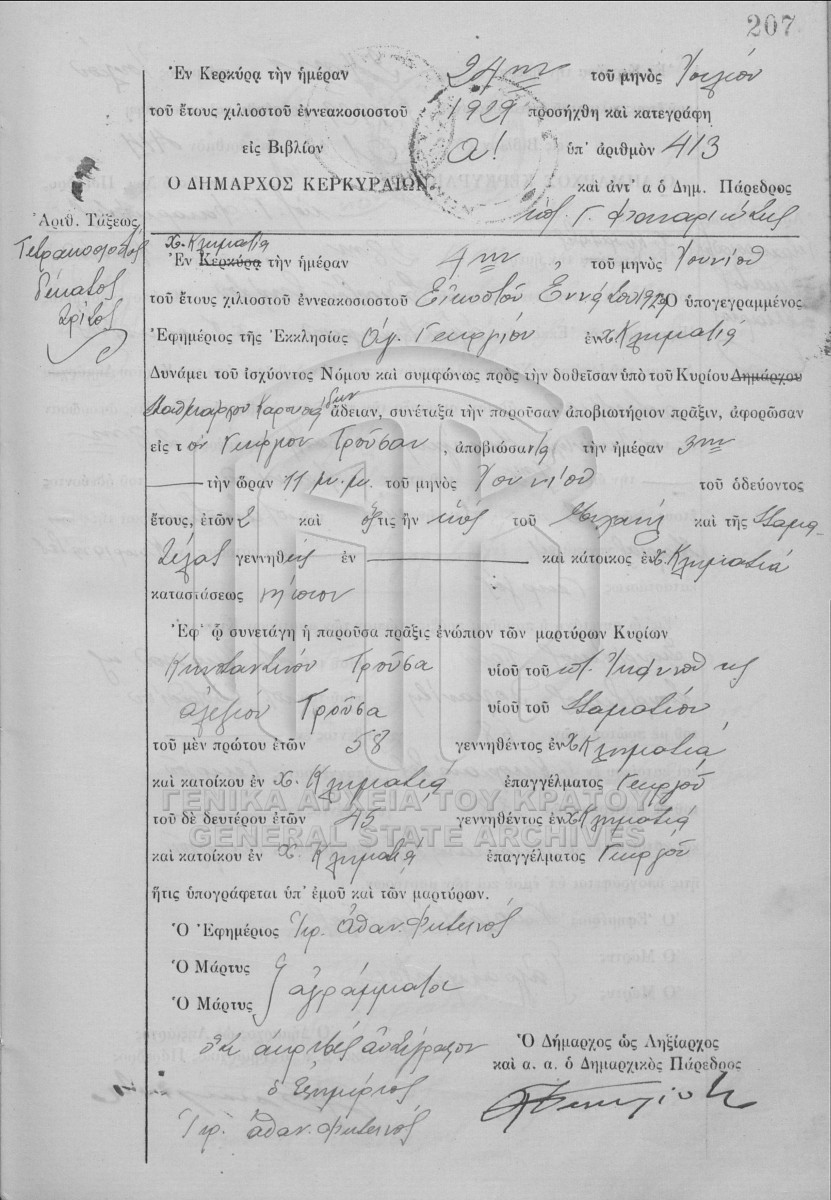 207
Ἐν Κερκύρᾳ τὴν ἡμέραν 24ην τοῦ μηνὸς Ἰουλίου
τοῦ ἔτους χιλιοστοῦ ἐννεακοσιοστοῦ 1929 προσήχθη καὶ κατεγράφη
εἰς Βιβλίον Α! ὑπ' ἀριθμὸν 413
Ο ΔΗΜΑΡΧΟΣ ΚΕΡΚΥΡΑΙΩΝ καὶ ἀντ' α ὁ Δημ. Πάρεδρος
Ἀριθ. Τάξεως
Τετρακοσιοστός
δέκατος
τρίτος
χ. Κληματιᾶ
Ἐν Κερκύρᾳ τὴν ἡμέραν 4ην τοῦ μηνὸς Ἰουνίου
τοῦ ἔτους χιλιοστοῦ ἐννεακοσιοστοῦ Εἰκοστοῦ Ἐννάτου 1929 Ὁ ὑπογεγραμμένος
Ἐφημέριος τῆς Ἐκκλησίας Ἁγ. Γεωργίου ἐν χ Κληματιᾷ
Δυνάμει τοῦ ἰσχύοντος Νόμου καὶ συμφώνως πρὸς τὴν δοθεῖσαν ὑπὸ τοῦ Κυρίου Δημάρχου
Σταθμάρχου Καρουσάδων ἄδειαν, συνέταξα τὴν παροῦσαν ἀποβιωτήριον πρᾶξιν, ἀφορῶσαν
εἰς τ όν Γεώργιον Τροῦσαν, ἀποβιώσαντα τὴν ἡμέραν 3ην
τὴν ὥραν 11 μ.μ. τοῦ μηνὸς Ἰουνίου τοῦ ὁδεύοντος
ἔτους, ἐτῶν 2 καὶ ὅςτις ἦν υἱός τοῦ Μιχαήλ καὶ τῆς Σταμα-
τέλας γεννηθείς ἐν καὶ κάτοικος ἐν χ. Κληματιᾷ
καταστάσεως νήπιον
Ἐφ' ᾧ συνετάγη ἡ παροῦσα πρᾶξις ἐνώπιον τῶν μαρτύρων Κυρίων
Κωνσταντίνου Τροῦσα υἱοῦ τοῦ
Ἀλεξίου Τροῦσα υἱοῦ τοῦ Σταματίου
τοῦ μὲν πρώτου ἐτῶν 58 γεννηθέντος ἐν χ Κληματιᾷ
καὶ κατοίκου ἐν χ. Κληματιᾷ ἐπαγγέλματος Γεωργοῦ
ΓΕΝΙΚΑ ΑΡΧΕΙΑ ΤΟΥ ΚΡΑΤΟΥΣ
τοῦ δὲ δευτέρου ἐτῶν 45 γεννηθέντος ἐν χ Κληματιᾷ
GENERAL STATE ARCHIVES
καὶ κατοίκου ἐν χ. Κληματιᾷ ἐπαγγέλματος Γεωργοῦ
ἥτις ὑπογράφεται ὑπ' ἐμοῦ καὶ τῶν μαρτύρων.
Ὁ Ἐφημέριος Ἱερ. Ἀθαν. Φωτεινός
Ὁ Μάρτυς
ἀγράμματοι
Ὁ Μάρτυς
ἀκριβές ἀντίγραφον
ὁ Ἐφημέριος
Ἱερ. Ἀθαν. Φωτεινός
Ὁ Δήμαρχος ὡς Ληξίαρχος
καὶ α. α. ὁ Δημαρχικὸς Πάρεδρος